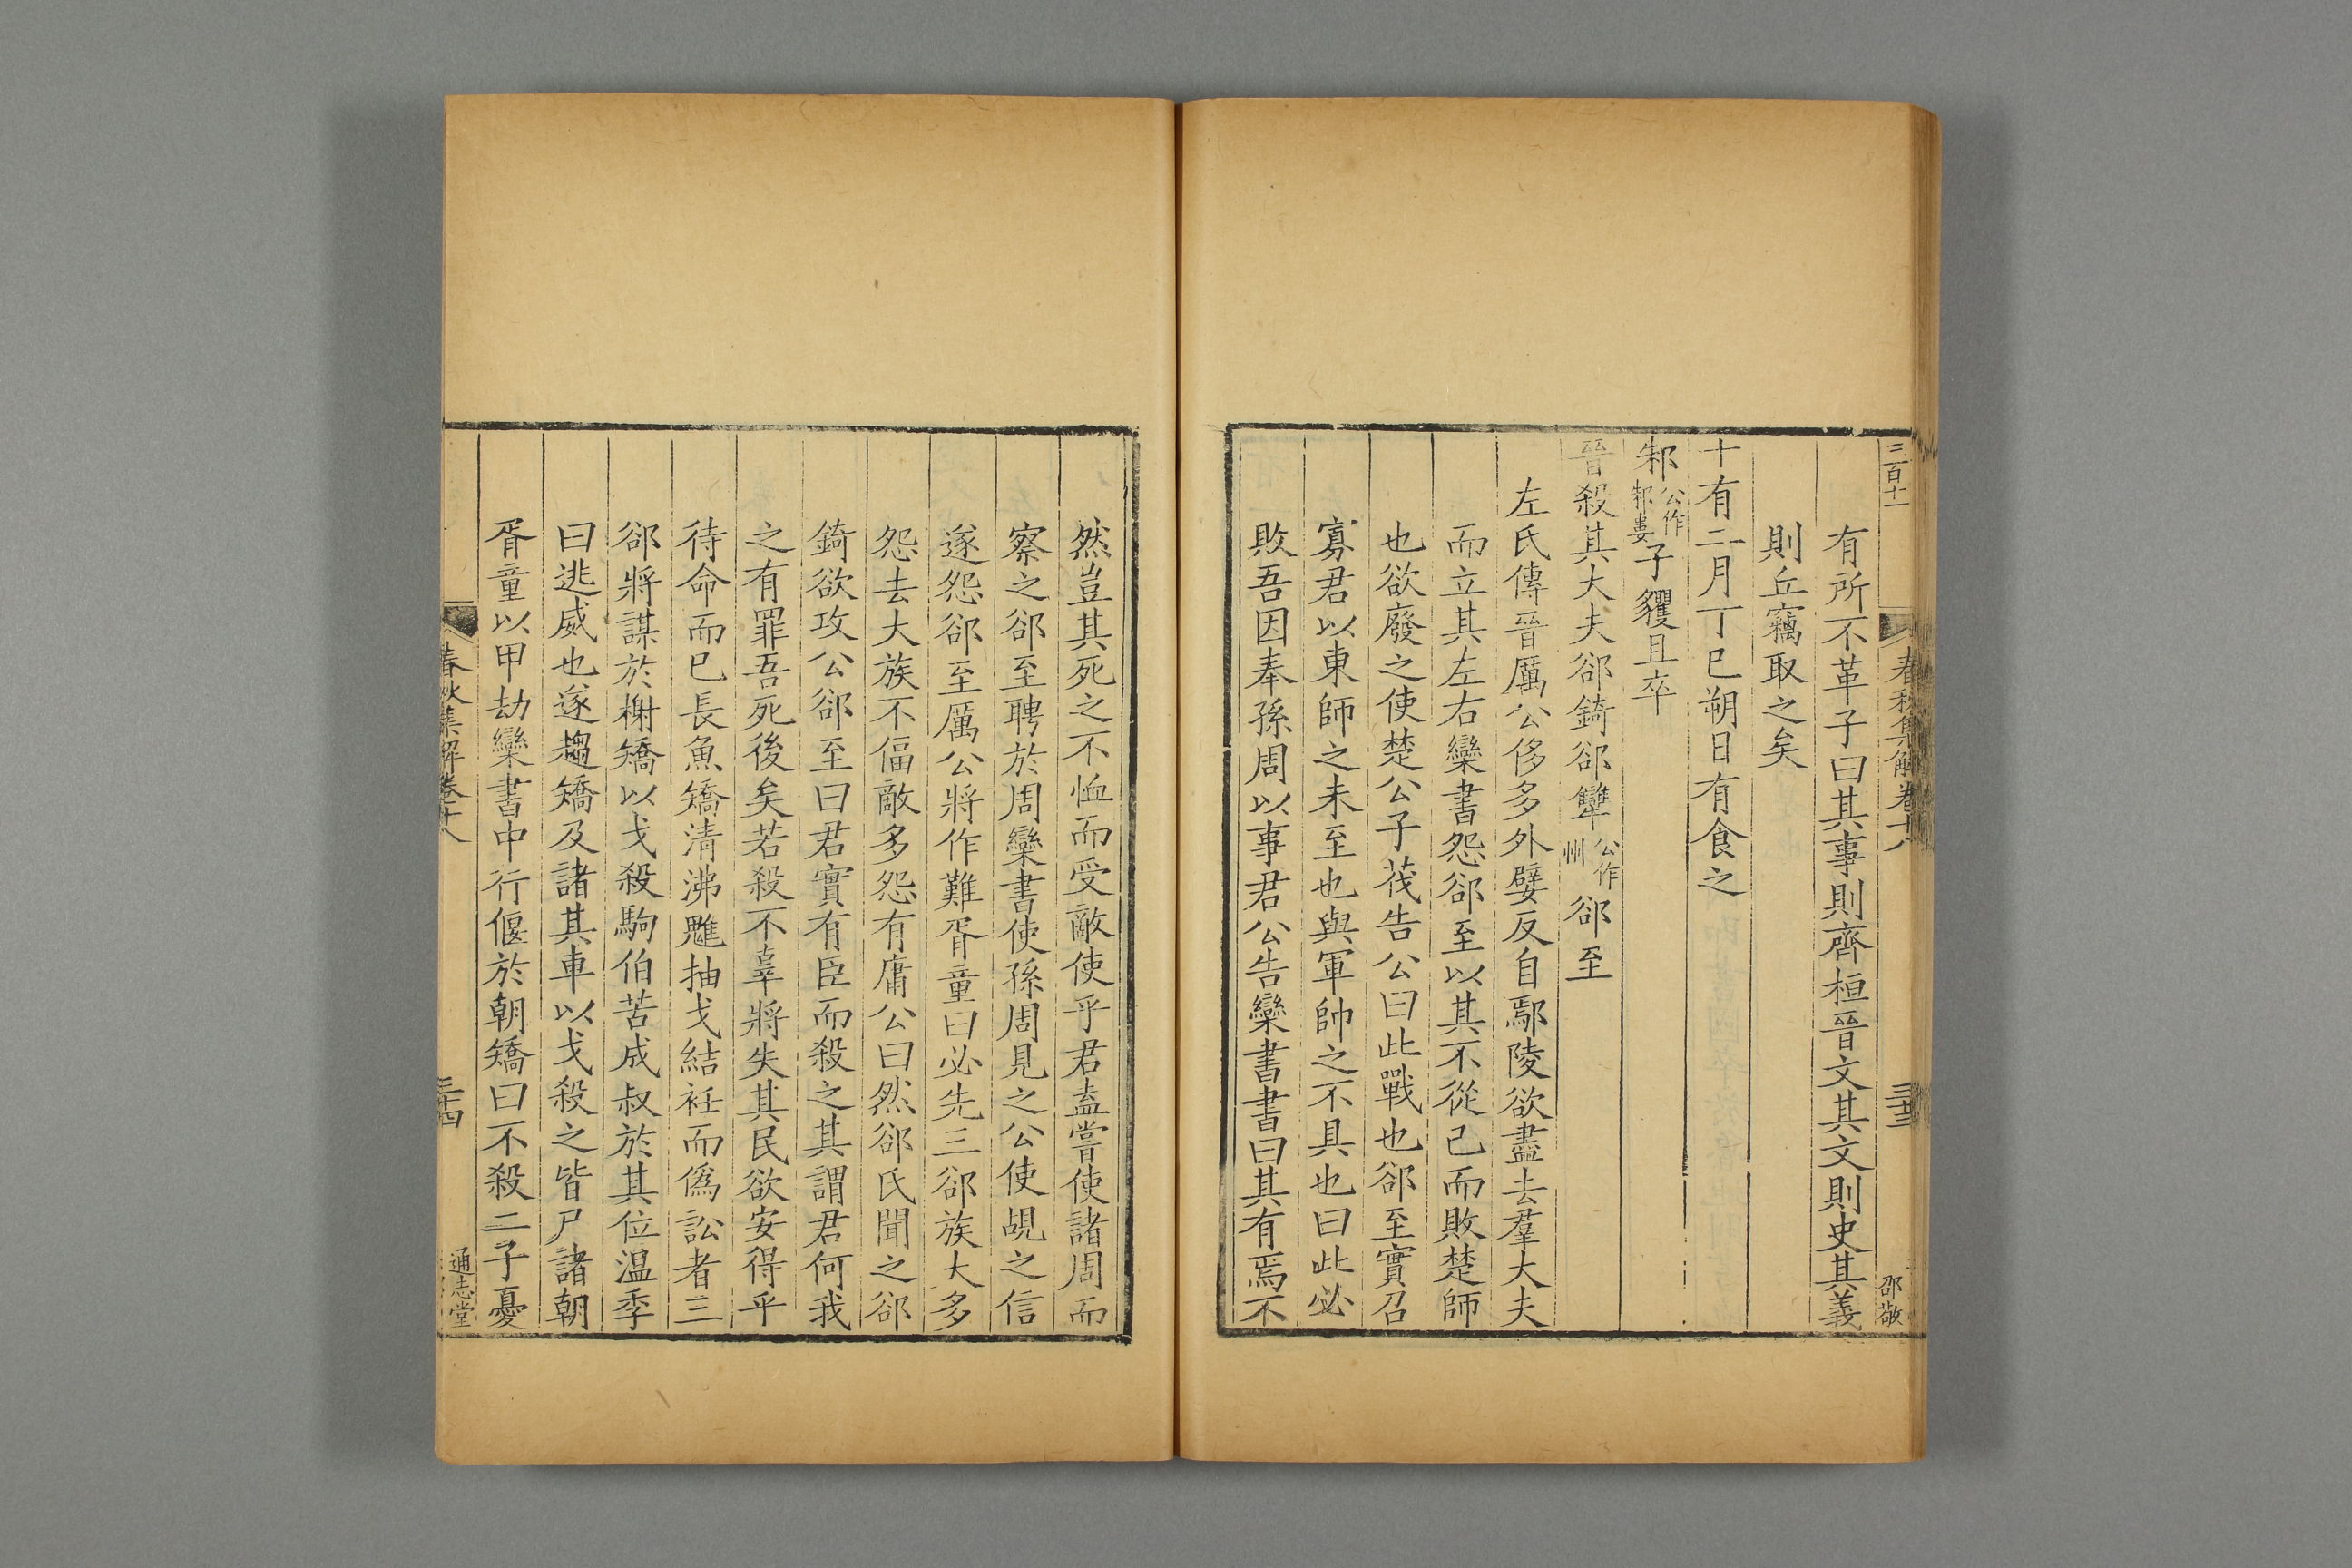 三百十一
春秋集解卷十八
三十三
邵敬
有所不革子曰其事則齊桓晉文其文則史其義
則丘竊取之矣
十有二月丁巳朔日有食之
邾公作邾婁子貜且卒
晉殺其大夫郤錡郤犨公作州郤至
左氏傳晉厲公侈多外嬖反自鄢陵欲盡去羣大夫
而立其左右欒書怨郤至以其不從己而敗楚師
也欲廢之使楚公子茷告公曰此戰也郤至實召
寡君以東師之未至也與軍帥之不具也曰此必
敗吾因奉孫周以事君公告欒書書曰其有焉不
然豈其死之不恤而受敵使乎君盍嘗使諸周而
察之郤至聘於周欒書使孫周見之公使覘之信
遂怨郤至厲公將作難胥童曰必先三郤族大多
怨去大族不偪敵多怨有庸公曰然郤氏聞之郤
錡欲攻公郤至曰君實有臣而殺之其謂君何我
之有罪吾死後矣若殺不辜將失其民欲安得乎
待命而已長魚矯清沸魋抽戈結衽而偽訟者三
郤將謀於榭矯以戈殺駒伯苦成叔於其位温季
曰逃威也遂趨矯及諸其車以戈殺之皆尸諸朝
胥童以甲劫欒書中行偃於朝矯曰不殺二子憂
春秋集解卷十八
三十四
通志堂